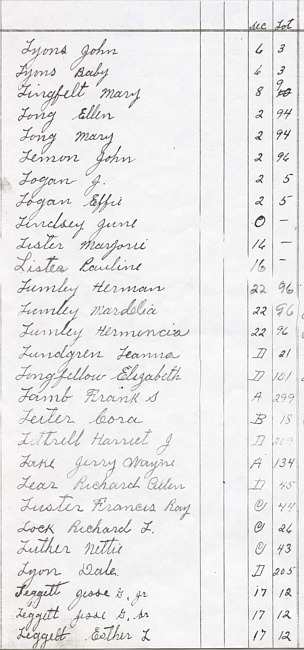 Sec Lot
Lyons John 6 3
Lyons Baby 6 3
Lingfelt Mary 8 9
Long Ellen 2 94
Long Mary 2 94
Lemon John 2 96
Logan J. 2 5
Logan Effie 2 5
Lindsey June O -
Lister Marjorie 16 -
Lister Pauline 16 -
Lumley Herman 22 96
Lumley Mardelia 22 96
Lumley Hermencia 22 96
Lundgren Leanna D 21
Longfellow Elizabeth D 101
Lamb Frank S A 299
Lester Cora B 18
Littrell Harriet J D 209
Lake Jerry Wayne A 134
Lear Richard Allen D 45
Luster Francis Ray C 44
Lock Richard L. C 26
Luther Nettie C 43
Lyon Dale D 205
Leggett Jesse G. Jr 17 12
Leggett Jesse G. Sr 17 12
Leggett Esther L 17 12